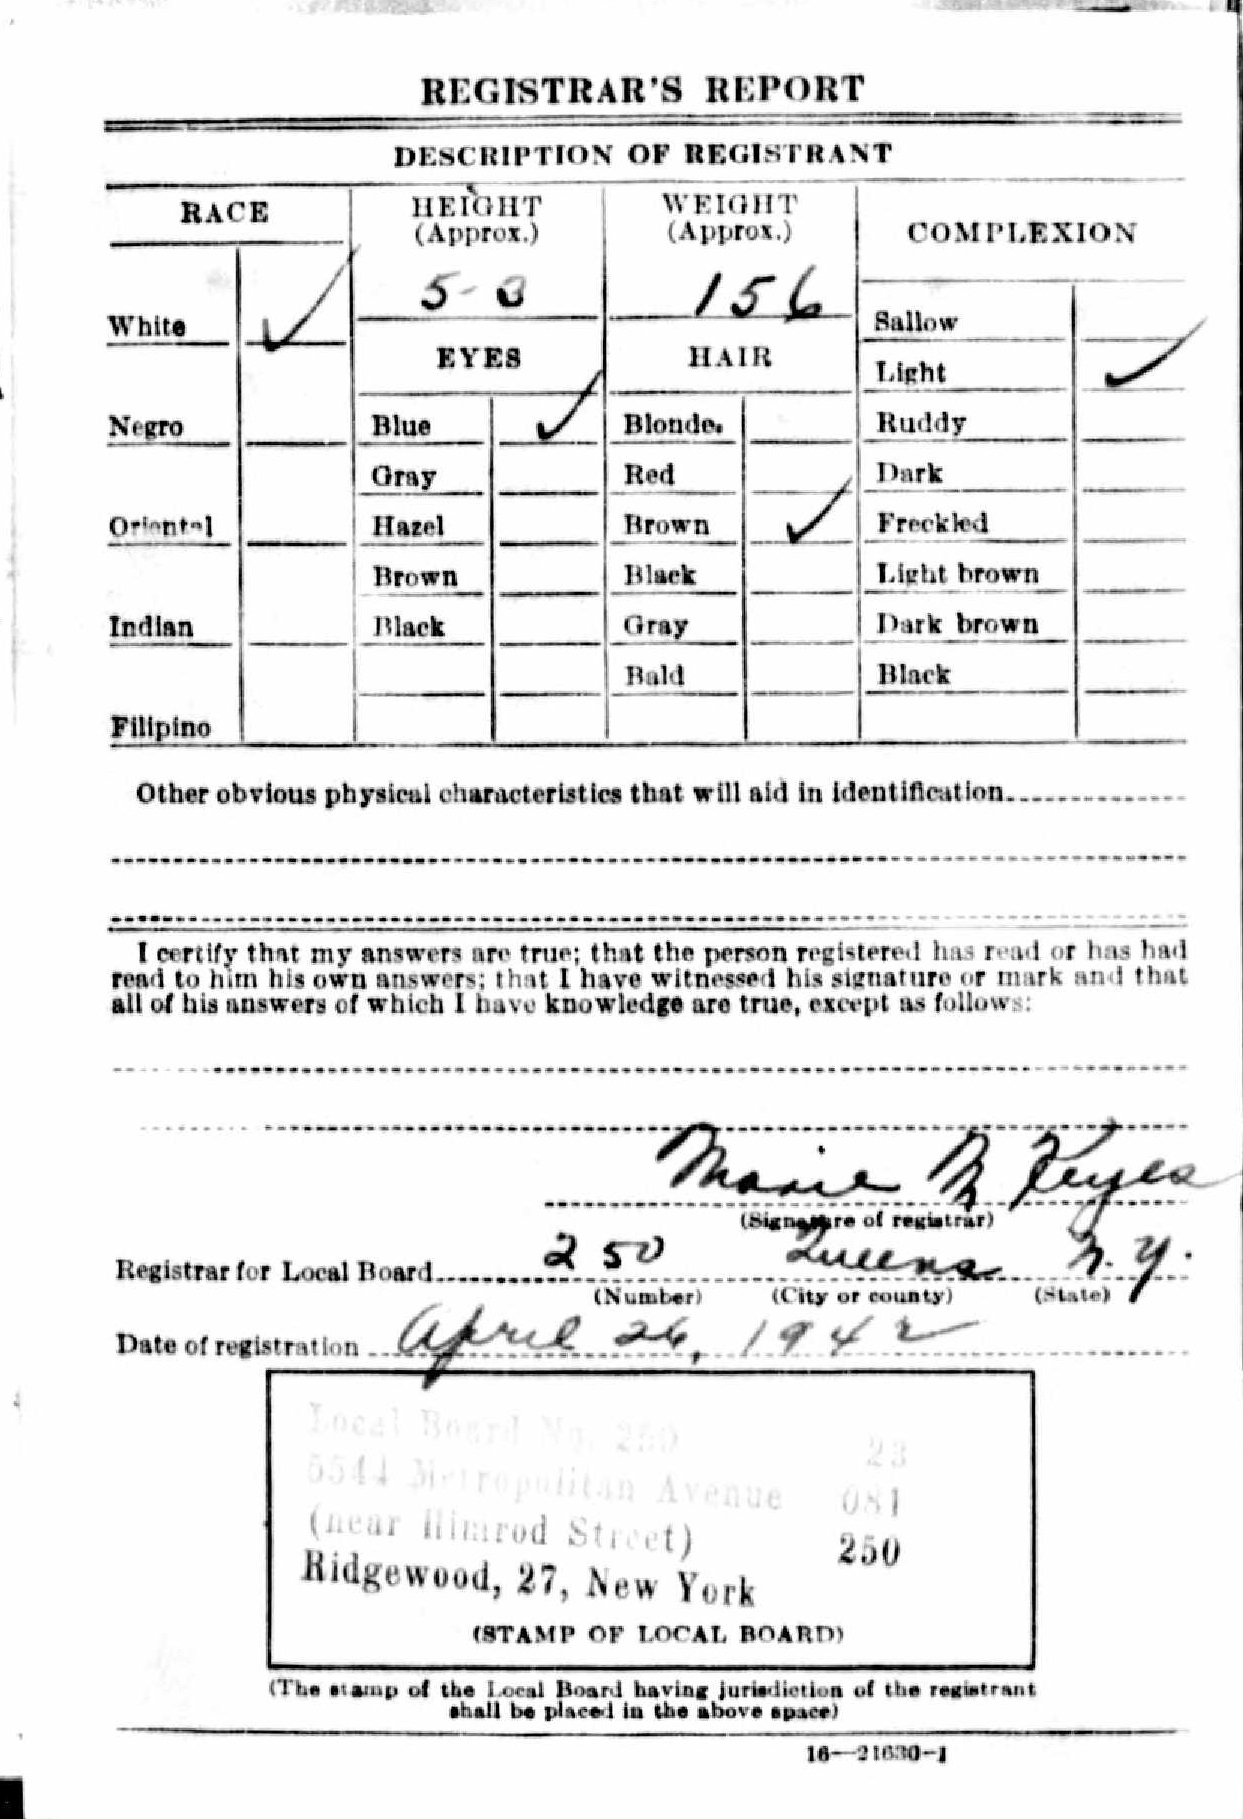 REGISTRAR'S REPORT
DESCRIPTION OF REGISTRANT
RACE
HEIGHT
(Approx.)
WEIGHT
(Approx.)
COMPLEXION
5-3
156
White ✓
Sallow
EYES
HAIR
Light ✓
Negro
Blue ✓
Blonde
Ruddy
Gray
Red
Dark
Oriental
Hazel
Brown ✓
Freckled
Brown
Black
Light brown
Indian
Black
Gray
Dark brown
Bald
Black
Filipino
Other obvious physical characteristics that will aid in identification
I certify that my answers are true; that the person registered has read or has had
read to him his own answers; that I have witnessed his signature or mark and that
all of his answers of which I have knowledge are true, except as follows:
Marie M Keyes
(Signature of registrar)
Registrar for Local Board 250 Queens N.Y.
(Number) (City or county) (State)
Date of registration April 26, 1942
Local Board No. 250 23
5544 Metropolitan Avenue 081
(near Himrod Street) 250
Ridgewood, 27, New York
(STAMP OF LOCAL BOARD)
(The stamp of the Local Board having jurisdiction of the registrant
shall be placed in the above space)
16—21630-1